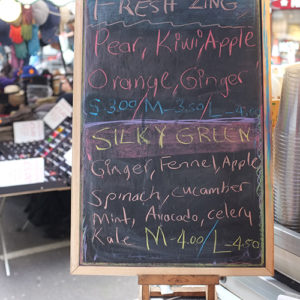 FRESH ZING
Pear, Kiwi, Apple
Orange, Ginger
S-3.00/M-3.50/L-4.00
SILKY GREEN
Ginger, Fennel, Apple
Spinach, cucumber
Mint, Avacado, celery
Kale M-4.00/L-4.50